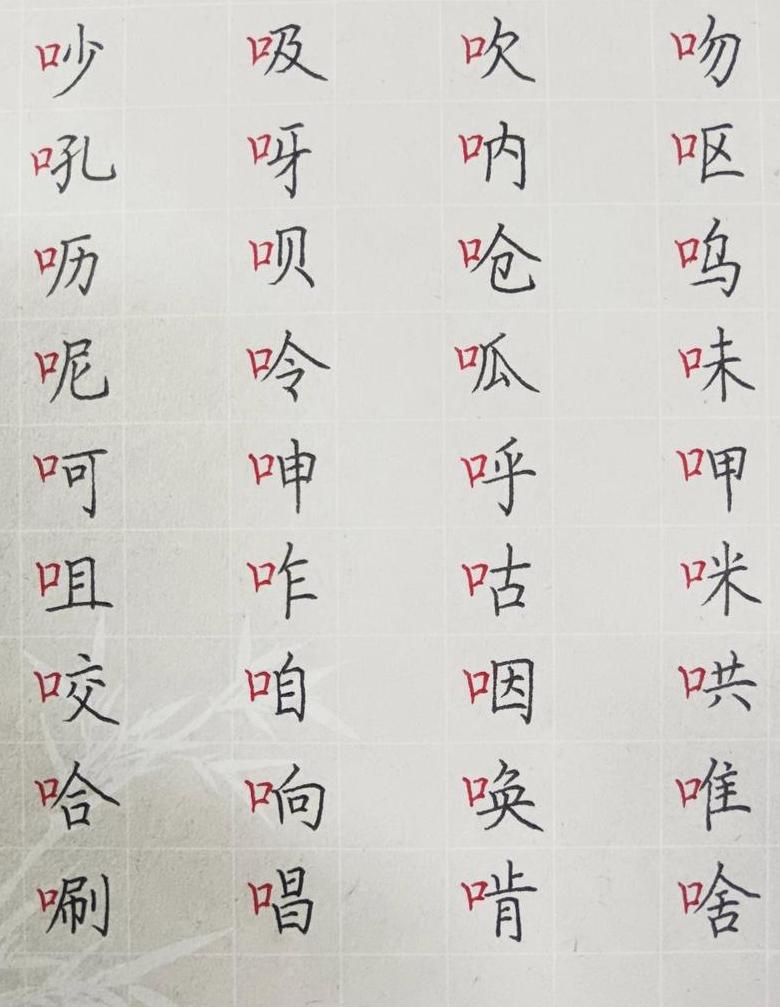 吵 吸 吹 吻
吼 呀 呐 呕
呖 呗 呛 呜
呢 呤 呱 味
呵 呻 呼 呷
咀 咋 咕 咪
咬 咱 咽 哄
哈 响 唤 唯
唰 唱 啃 啥